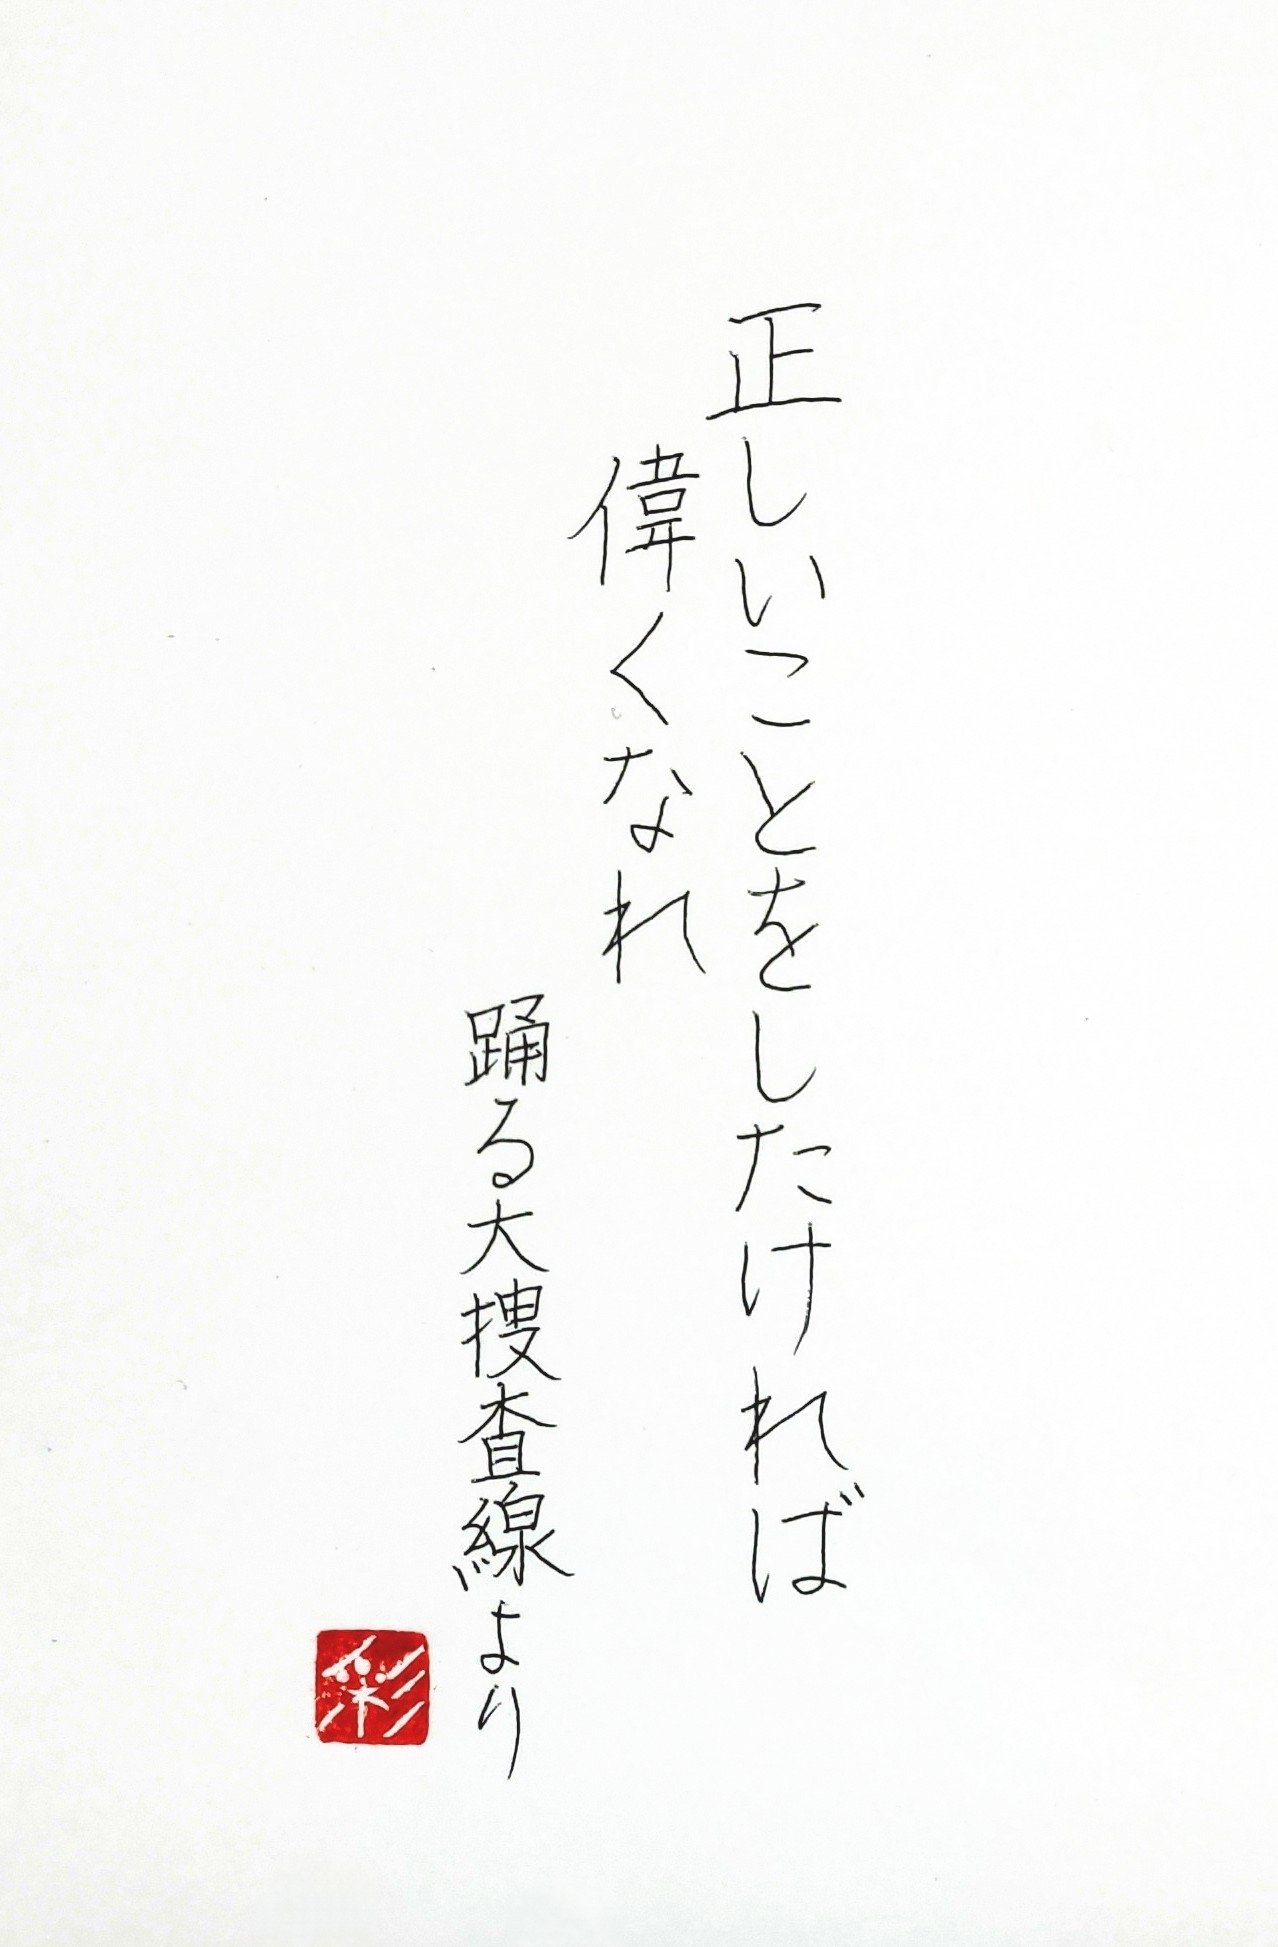 正しいことをしたければ
偉くなれ
踊る大捜査線より
彩